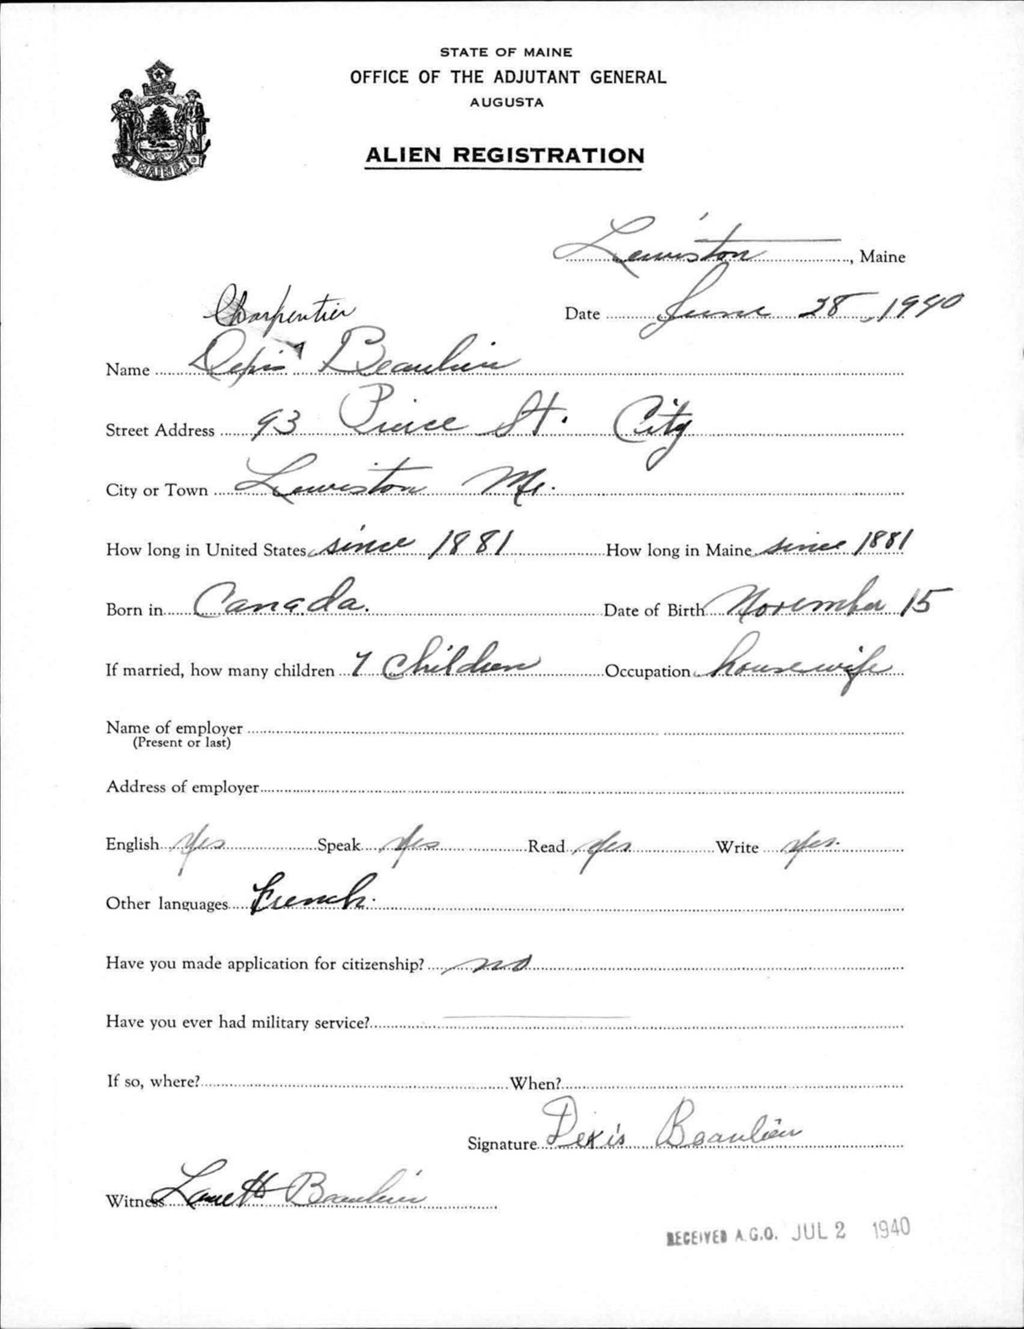 STATE OF MAINE
OFFICE OF THE ADJUTANT GENERAL
AUGUSTA
MAINE
ALIEN REGISTRATION
Lewiston, Maine
Date June 28, 1940
Charpentier
Name Beaulieu
Street Address 93 Pierce St. City
City or Town Lewiston Me.
How long in United States since 1881 How long in Maine since 1881
Born in Canada. Date of Birth November 15
If married, how many children 7 children Occupation housewife
Name of employer
(Present or last)
Address of employer
English Yes Speak Yes Read Yes Write Yes.
Other languages French.
Have you made application for citizenship? no
Have you ever had military service?
If so, where? When?
Signature Beaulieu
Witness Beaulieu
RECEIVED A.G.O. JUL 2 1940